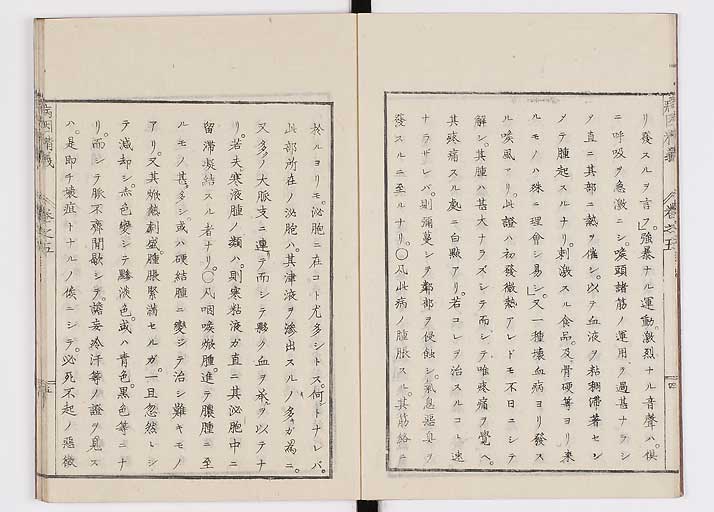 リ發スルヲ言フ」強暴ナル運動激烈ナル音聲ハ。俱
ニ呼吸ヲ急激ニシ。喉頭諸筋ノ運用ヲ過甚ナラシ
メ直ニ其部ニ熱ヲ催シ。以テ血液ヲ粘稠滯著セシ
メテ腫起スルナリ。刺激スル食品。及骨硬等ヨリ来
ルモノハ殊ニ理會シ易シ」又一種壊血病ヨリ發ス
ル喉風アリ。此證ハ初發微熱アレドモ不日ニシテ
解シ。其腫ハ甚大ナラズシテ而シテ唯疼痛ヲ覺ヘ。
其疼痛スル處ニ白點アリ。若コレヲ治スルコト速
ナラザレバ。則彌蔓シテ鄰部ヲ侵蝕シ。氣息惡臭ヲ
發スルニ至ルナリ。〇凡此病ノ腫脹スル。其筋絡ニ
四
於ルヨリモ。泌胞ニ在コト尤多シトス。何トナレバ。
此部所在ノ泌胞ハ。其津液ヲ滲出スルノ多ガ爲ニ。
又多ク大脉支ニ連テ而シテ夥ク血ヲ承クヲ以テナ
リ。若夫寒液腫ノ類ハ。則寒粘液ガ直ニ其泌胞中ニ
留滯凝結スル者ナリ。〇凡咽喉焮腫進テ膿腫ニ至
ルモノ甚多シ。或ハ硬結腫ニ變ジテ治シ難キモノ
アリ。又其焮熱劇盛。腫脹緊滿セルガ。一旦忽然トシ
テ減却シ。赤色變シテ黲淡色。或ハ青色。黑色等ニナ
リ。而シテ脉不齊間歇シテ。譫妄冷汗等ノ證ヲ見ス
ハ。是即チ壊疽トナルノ候ニシテ。必死不起ノ惡徴
病因精義
卷之五
五